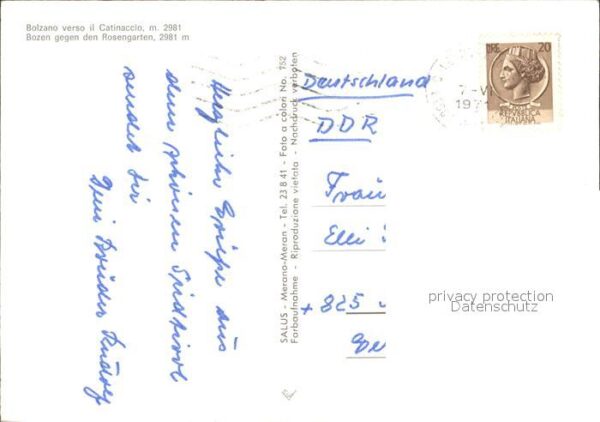 Bolzano verso il Catinaccio, m. 2981
Bozen gegen den Rosengarten, 2981 m
Herzliche Grüße aus
dem schönen Südtirol
sendet Dir
Dein Bruder Rudolf
SALUS - Merano-Meran - Tel. 23 8 41 - Foto a colori No. 752
Farbaufnahme - Riproduzione vietata - Nachdruck verboten
LIRE 20
REPUBBLICA
ITALIANA
1971
Deutschland
DDR
Frau
Elli
+ 825
privacy protection
Datenschutz